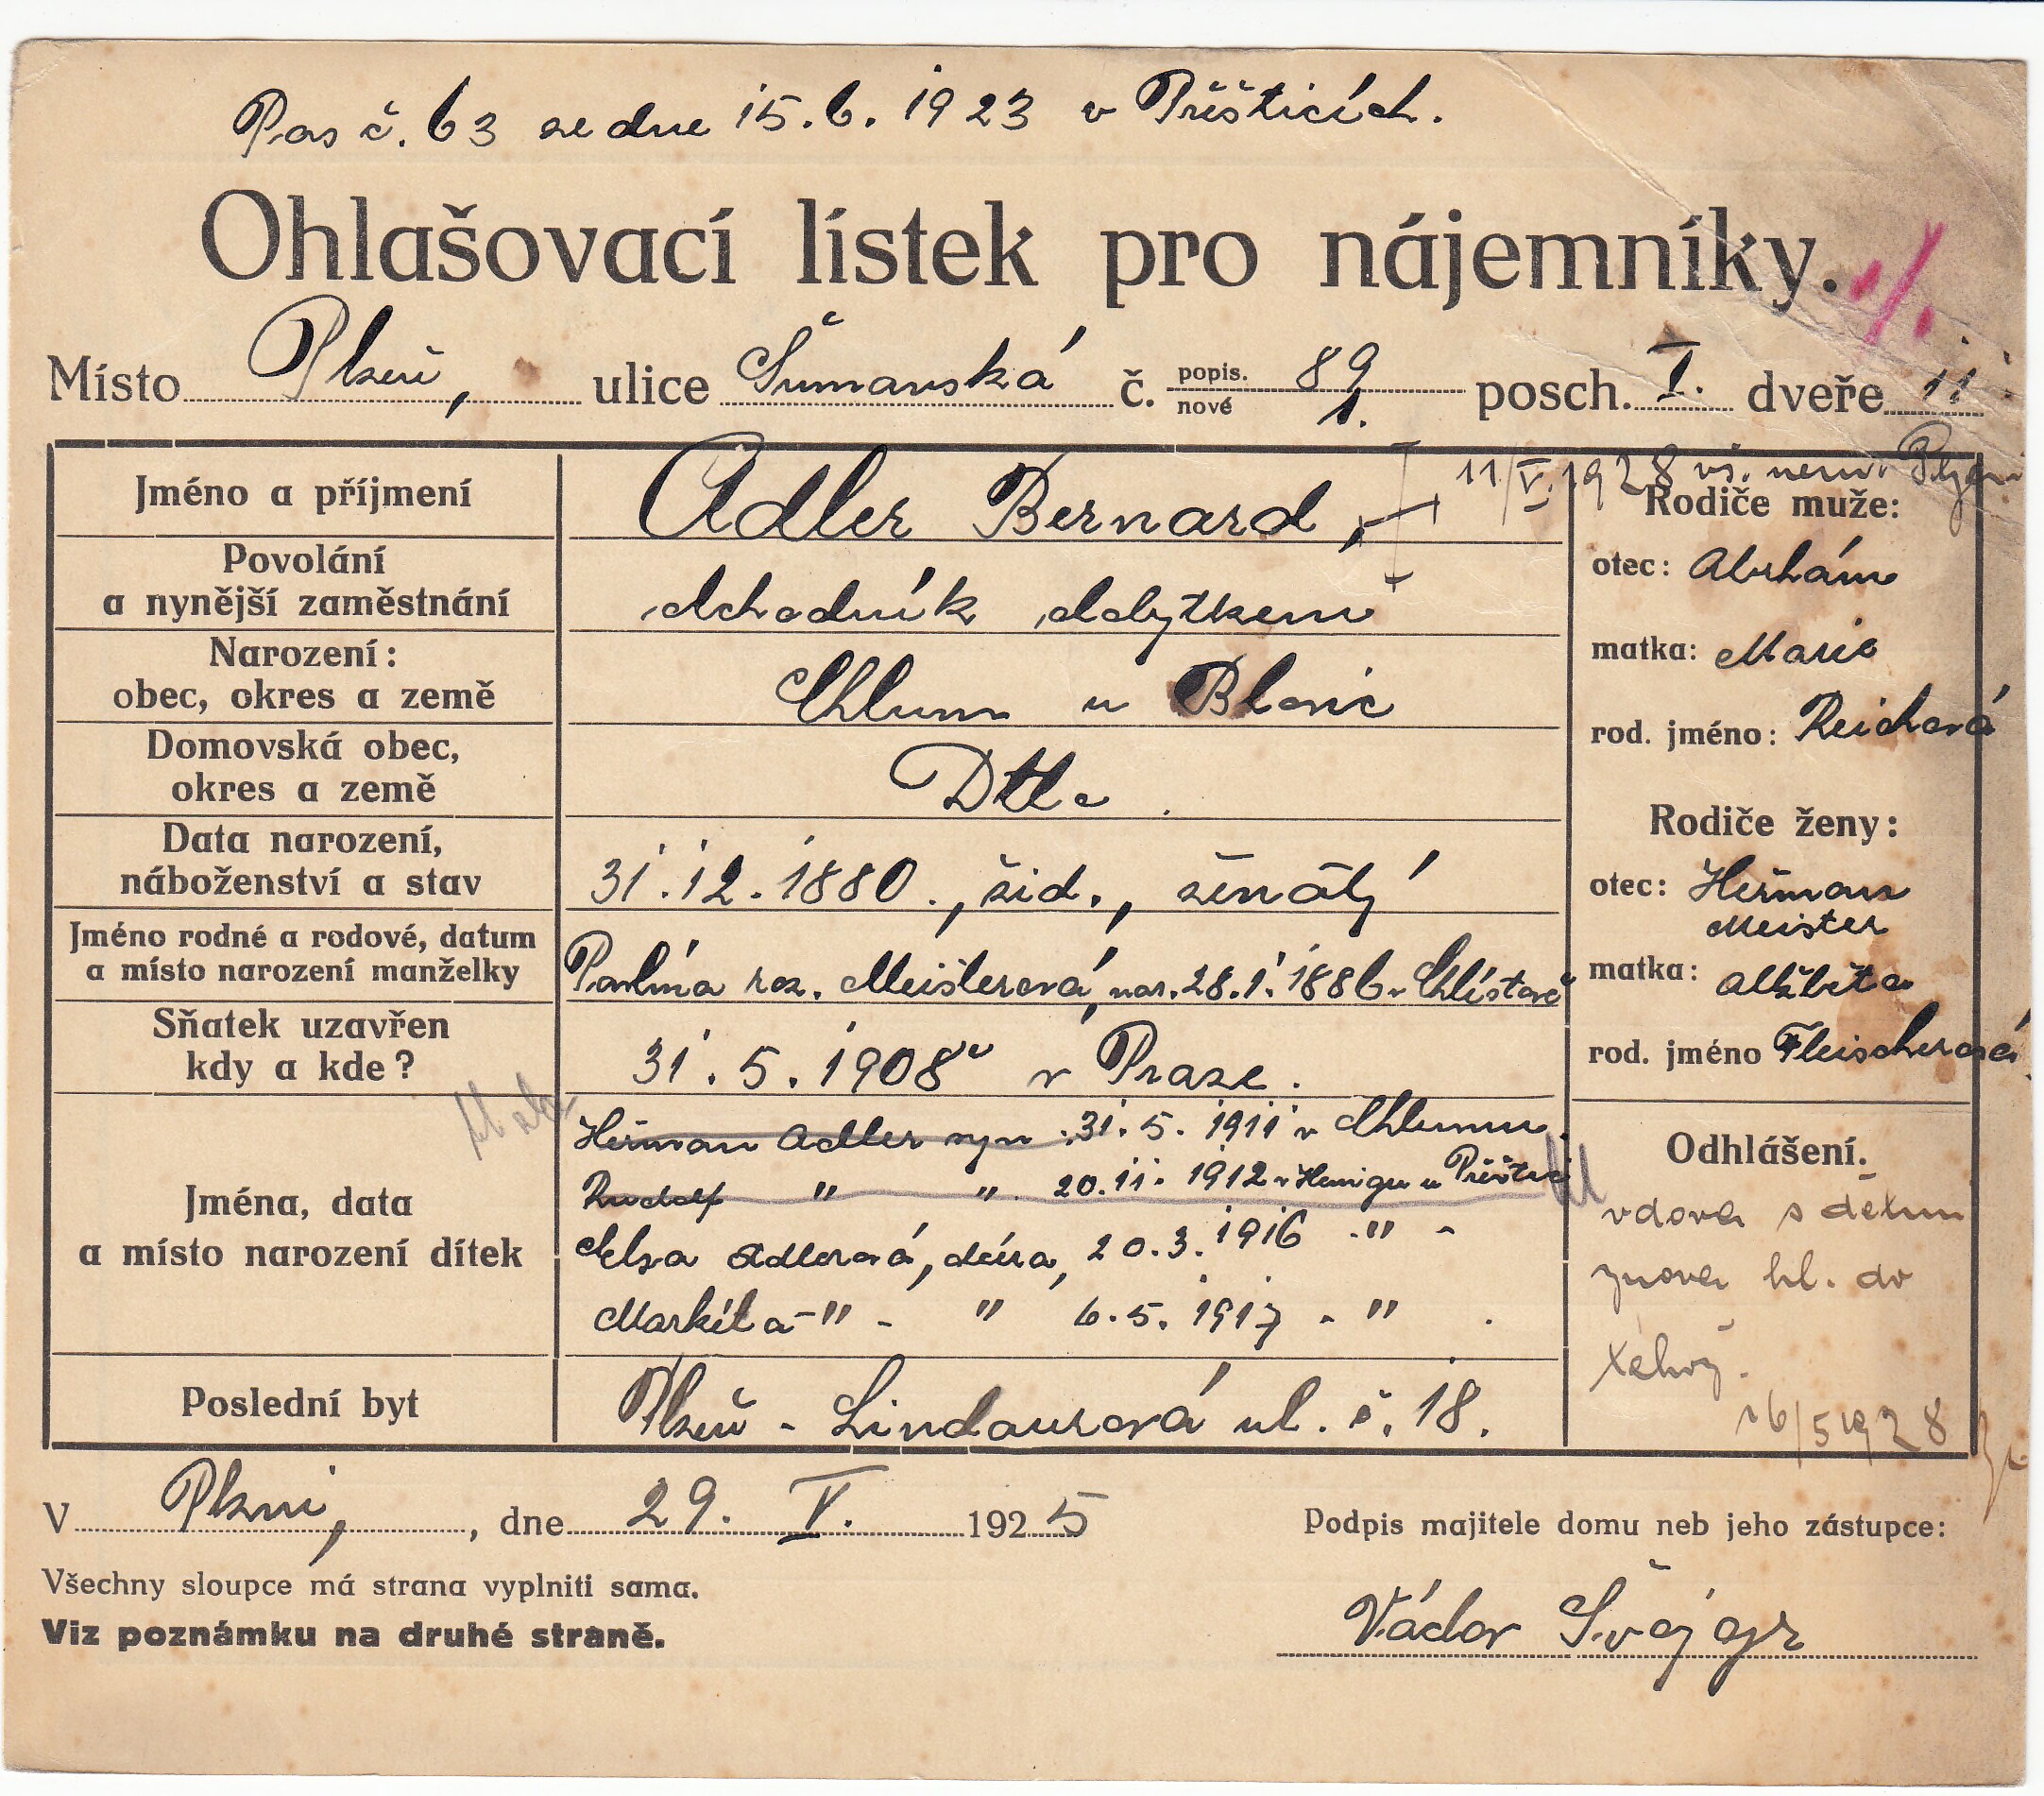 Pas č. 63 ze dne 15.6.1923 v Přešticích.
Ohlašovací lístek pro nájemníky.
Místo Plzeň, ulice Šumavská č. popis. 89 nové 1. posch. I. dveře 11
Jméno a příjmení
Adler Bernard,
11/V. 1928 vš. nem. Plzeň
Povolání
a nynější zaměstnání
obchodník dobytkem
Narození:
obec, okres a země
Chlum u Blovic
Domovská obec,
okres a země
Dtto
Data narození,
náboženství a stav
31.12.1880., žid., ženatý
Jméno rodné a rodové, datum
a místo narození manželky
Pavlína roz. Meisterová, nar. 28.1.1886 v
Sňatek uzavřen
kdy a kde?
31.5.1908 v Praze.
Jména, data
a místo narození dítek
Heřman Adler syn 31.5.1911 v Chlumu.
Rudolf " " 20.11.1912 v u Přeštic
Elsa Adlerová, dcera, 20.3.1916 -"-
Markéta -"- " 6.5.1917 -"- .
Poslední byt
Plzeň - Lindaurová ul. č. 18.
Rodiče muže:
otec: Abrhám
matka: Marie
rod. jméno: Reichová
Rodiče ženy:
otec: Heřman
Meister
matka: Alžběta
rod. jméno Fleischerová
Odhlášení.
vdova s dětmi
znova hl. do
16/5 1928
V Plzni, , dne 29. V. 1925
Podpis majitele domu neb jeho zástupce:
Všechny sloupce má strana vyplniti sama.
Viz poznámku na druhé straně.
Václav Švajgr